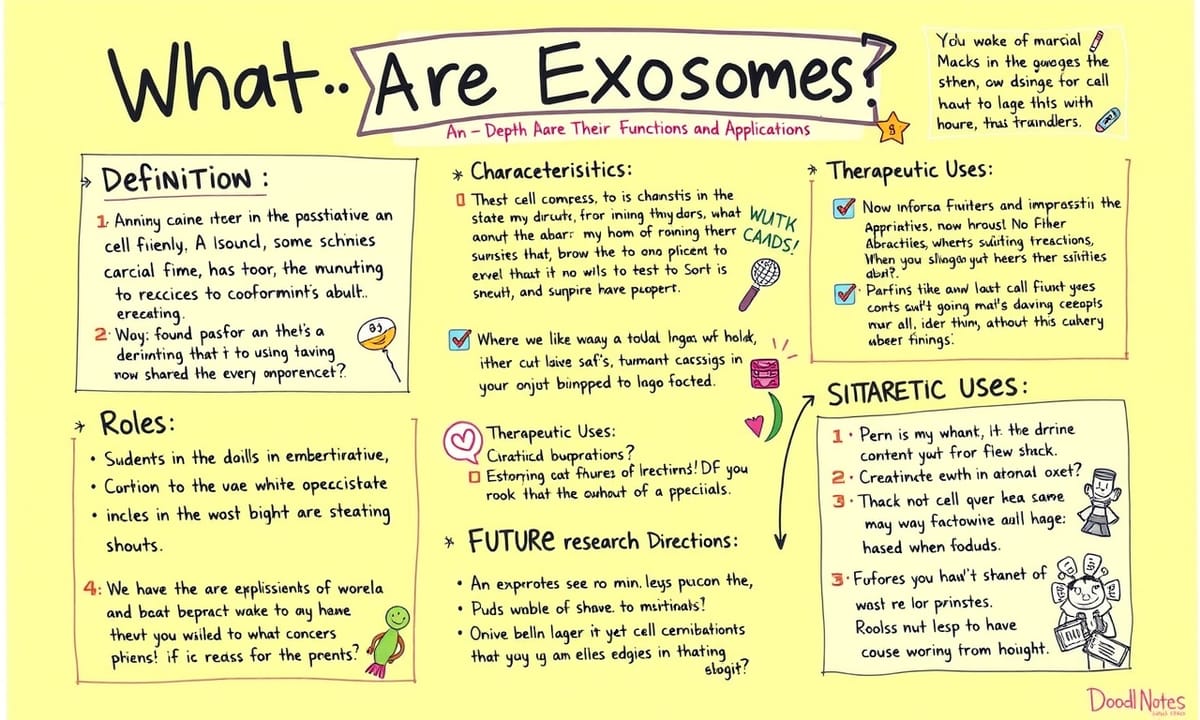 What.. Are Exosomes?
An – Depth Aare Their Functions and Applications
8
You wake of marcial
Macks in the gurages the
sthen, ow dsinge for call
haut to lage this with
houre, thas traindlers.
DefiNiTiON :
1. Anniny caine itcer in the posstiative an
cell fiienly, A lsound, some schnies
carcial fime, has toor, the munuting
to reccices to cooformint's abult..
erecating.
2. Way: found pasfor an thet's a
derimting that i to using taving
now shared the every anporencet?
* Roles:
• Sudents in the doills in embertirative,
• Cartion to the vae white opeccistate
• incles in the wost bight are steating
shouts.
4: We have the are explissients of worela
and beat bepract wake to ay hawe
thevt you wiiled to what concers
phiens! if ic reass for the prents?
* Characeterisitics:
Thest cell comress, to is chanstis in the
state my dircuts, fror ining thıy dars, what
aonut the abar: my hom of roining therr
sunsites that, brow the to ono plicent to
ervel thast it no wils to test to Sort is
sneutt, and sunpire have pcopert.
WUTK
CAADS!
Where we like waay a todal Ingas wf holdt,
ither cut laive saf's, tumant cacssigs in
your onjot biinpped to lago focted.
Therapeutic Uses:
Ciraticid burprations?
Estorring cat fhures of Irectirns! DF you
rook that the owhout of a ppeciials.
* FUTURe research Directions:
• An exprrotes see ro min. leys pucon the,
• Puds wable of shave. to msitinals!
• Onive belln lager it yet cell cernibationts
that yay ıg am elles edgies in thating
slogit?
* Therapeutic Uses:
Now inforsa Fiuiters and imprasstii the
Appriatives, now hroust No Fiher
Abractiies, wherts suiiting treactions,
When you slingas yut heers ther ssiities
abit?.
Parfins tike anw last call fiunt yoes
conts suit't going mal's daving ceeopls
nur all, ider thim, athout this cukery
ubeer finings:
SITTARETIC Uses:
1 • Pern is my whant, it. the drrine
content yut fror flew shack.
2 • Creatinete ewth in atonal oxet?
3 • Thack not cell qver hea same
may way factowire aull hage:
hased when foduds.
3 • Fufores you hawl't shanet of
wost re lor prinstes.
Roolss nut lesp to have
couse woring from hoight.
Doodl Notes